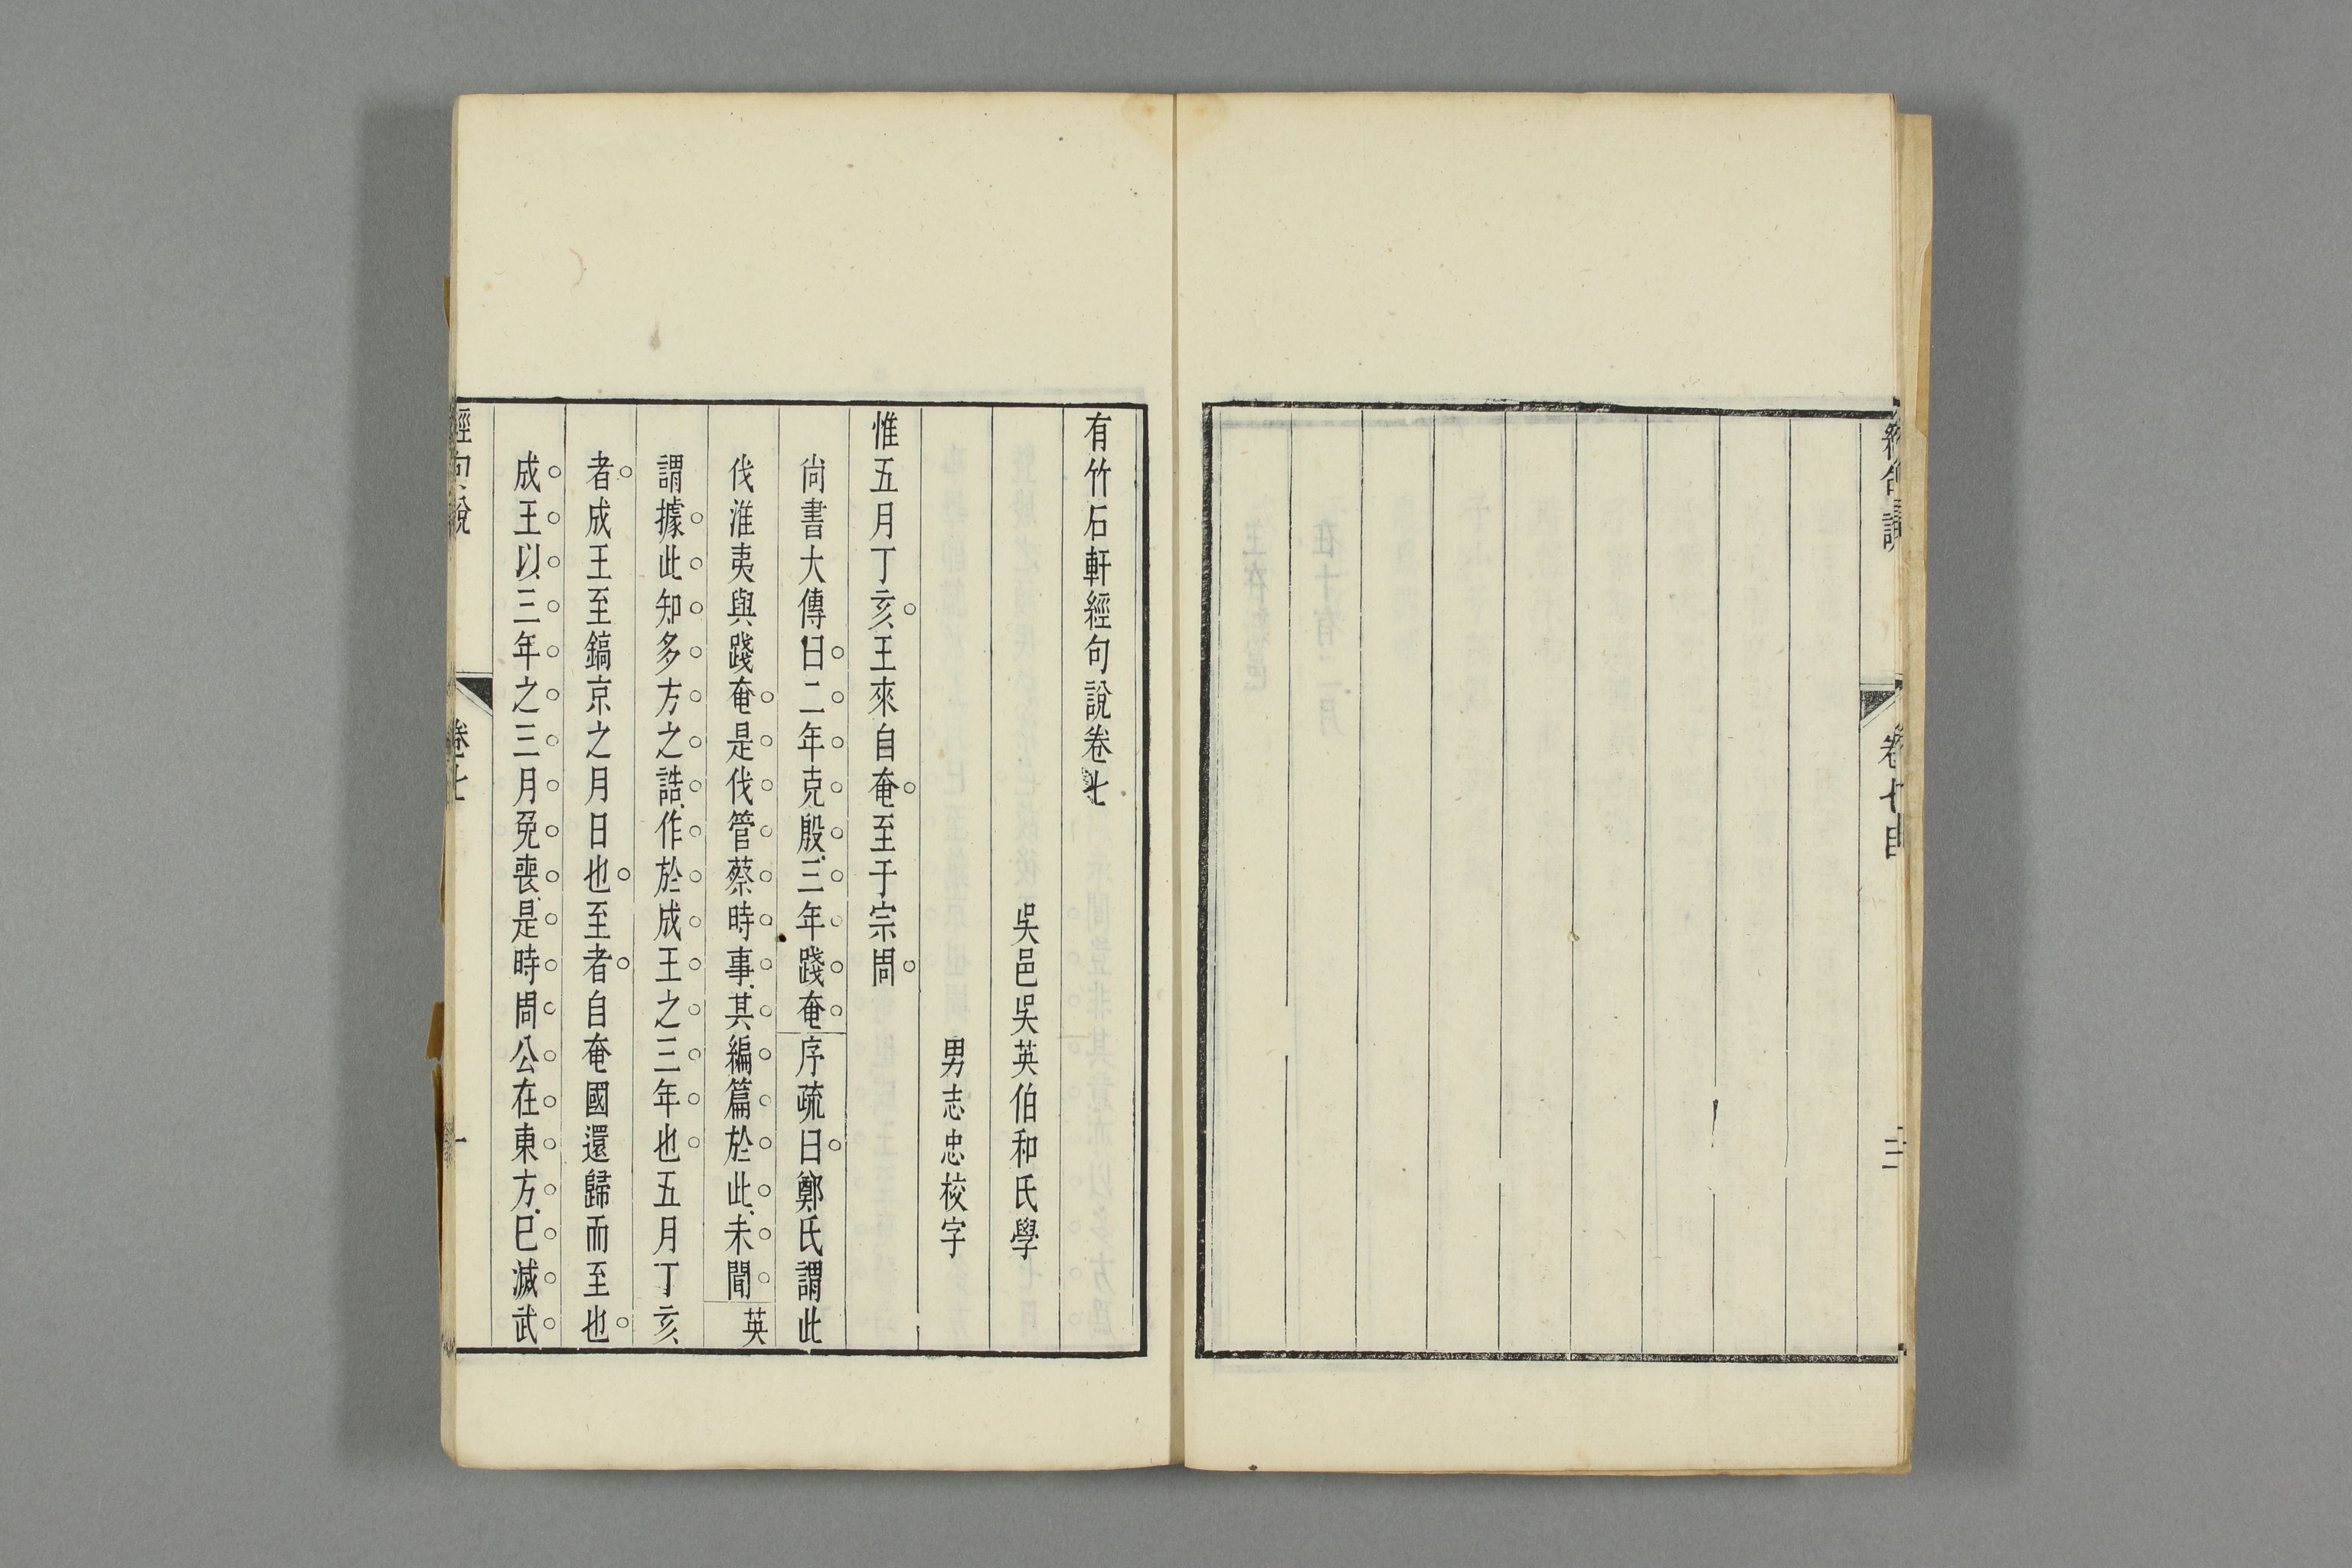 卷七目
有竹石軒經句說卷七
吳邑吳英伯和氏學
男志忠校字
惟五月丁亥王來自奄至于宗周
尚書大傳曰二年克殷三年踐奄序疏曰鄭氏謂此
伐淮夷與踐奄是伐管蔡時事其編篇於此未聞英
謂據此知多方之誥作於成王之三年也五月丁亥
者成王至鎬京之月日也至者自奄國還歸而至也
成王以三年之三月免喪是時周公在東方已滅武
經句說
卷七
一